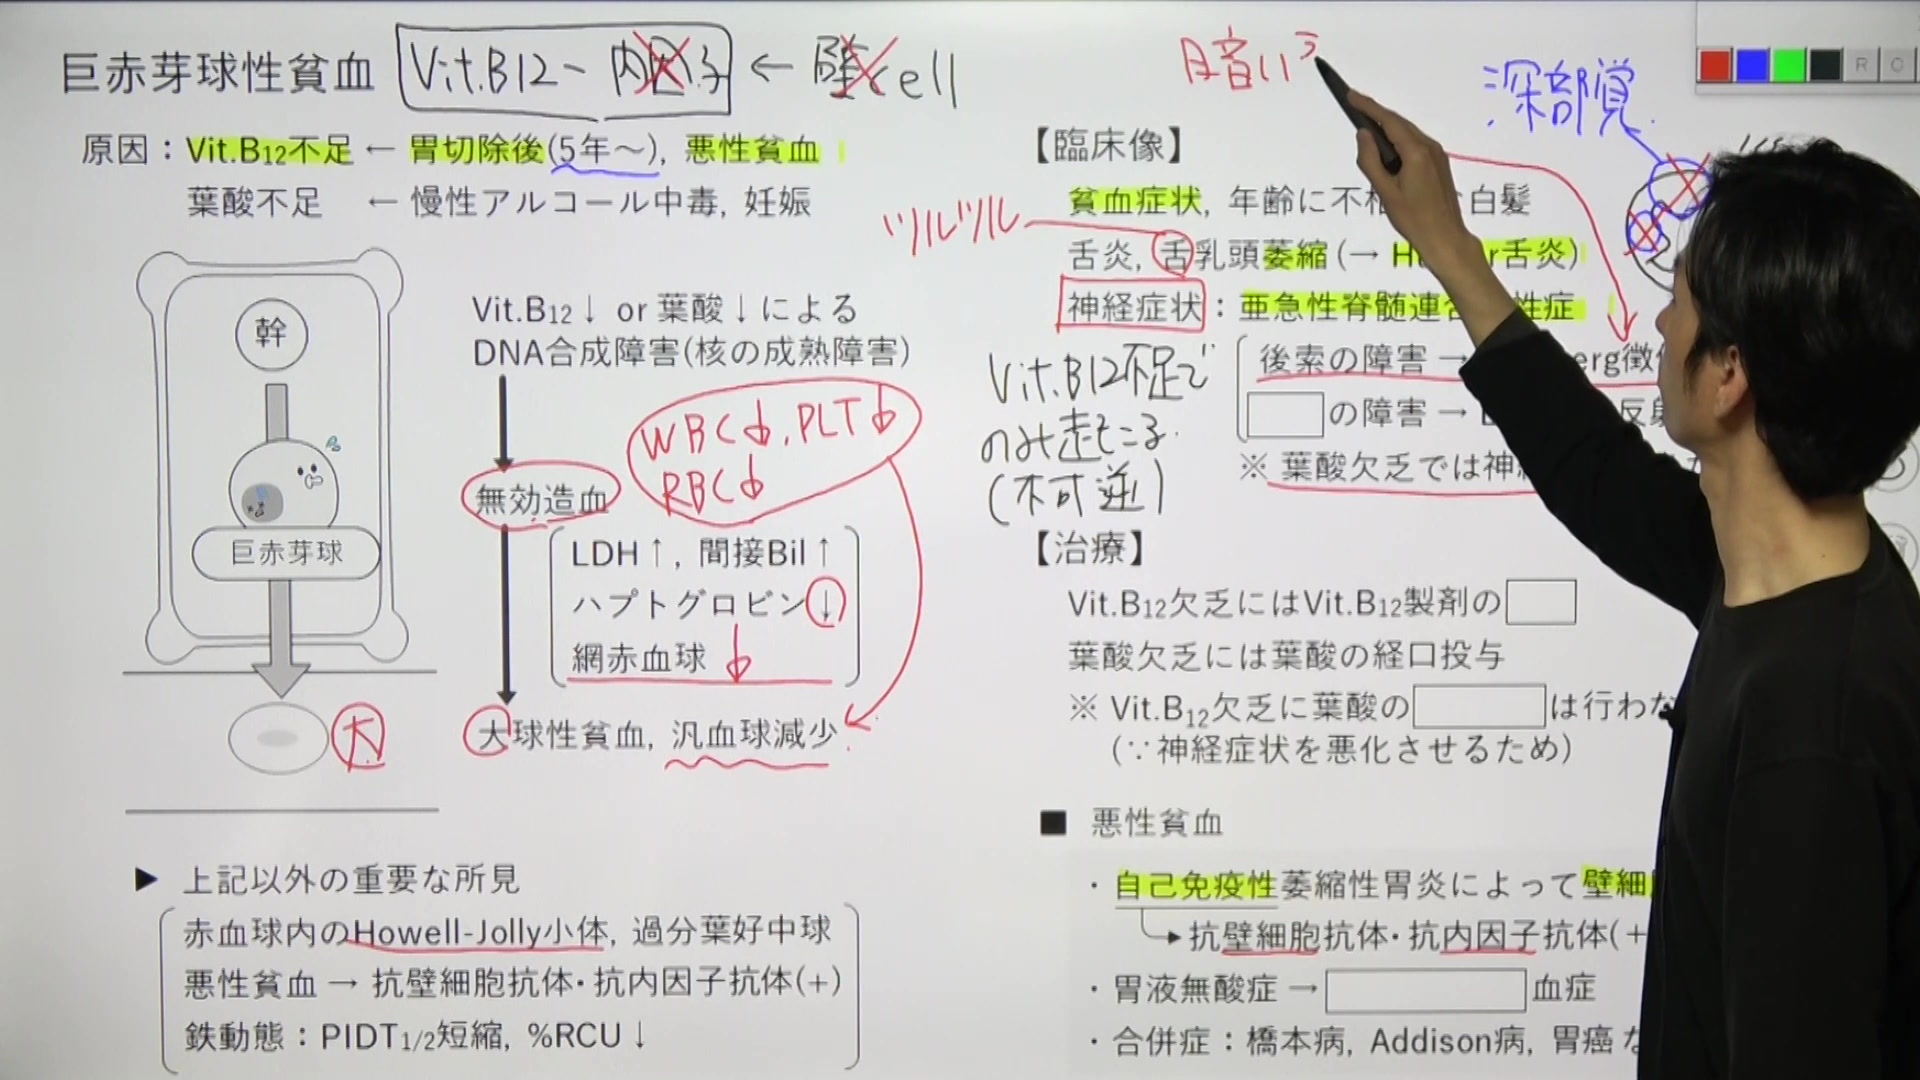 巨赤芽球性貧血 Vit.B12 ~ 内因子 ← 壁cell
原因：Vit.B12不足 ← 胃切除後(5年～), 悪性貧血
葉酸不足 ← 慢性アルコール中毒, 妊娠
幹
巨赤芽球
大
Vit.B12↓ or 葉酸↓による
DNA合成障害(核の成熟障害)
WBC↓, PLT↓
RBC↓
無効造血
LDH↑, 間接Bil↑
ハプトグロビン↓
網赤血球 ↓
大球性貧血, 汎血球減少
▶ 上記以外の重要な所見
赤血球内のHowell-Jolly小体, 過分葉好中球
悪性貧血 → 抗壁細胞抗体・抗内因子抗体(+)
鉄動態：PIDT1/2短縮, %RCU↓
暗い
深部覚
R O
【臨床像】
貧血症状, 年齢に不 白髪
ツルツル
舌炎, 舌乳頭萎縮 (→ H r舌炎)
神経症状：亜急性脊髄連 性症
Vit.B12不足で
のみ起こる
(不可逆)
後索の障害 → erg徴
の障害 → 反
※ 葉酸欠乏では神
【治療】
Vit.B12欠乏にはVit.B12製剤の
葉酸欠乏には葉酸の経口投与
※ Vit.B12欠乏に葉酸の は行わな
(∵神経症状を悪化させるため)
■ 悪性貧血
・自己免疫性萎縮性胃炎によって壁細
抗壁細胞抗体・抗内因子抗体(+
・胃液無酸症 → 血症
・合併症：橋本病, Addison病, 胃癌 な